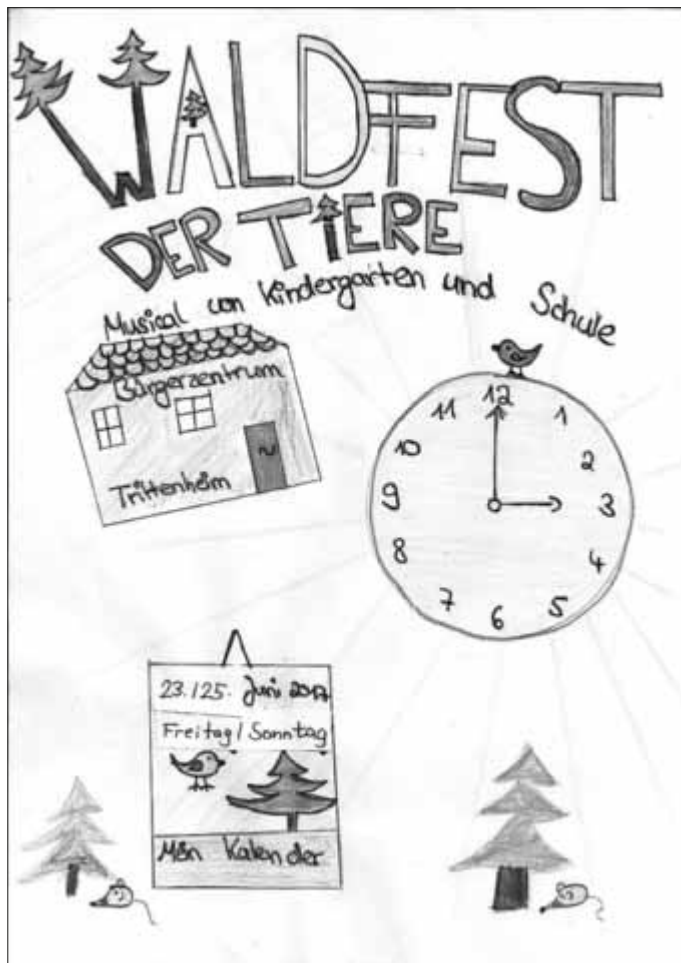 WALDFEST
DER TIERE
Musical von Kindergarten und Schule
Bürgerzentrum
Trittenheim
12
1
2
3
4
5
6
7
8
9
10
11
23./25. Juni 2017
Freitag/Sonntag
Mein Kalender